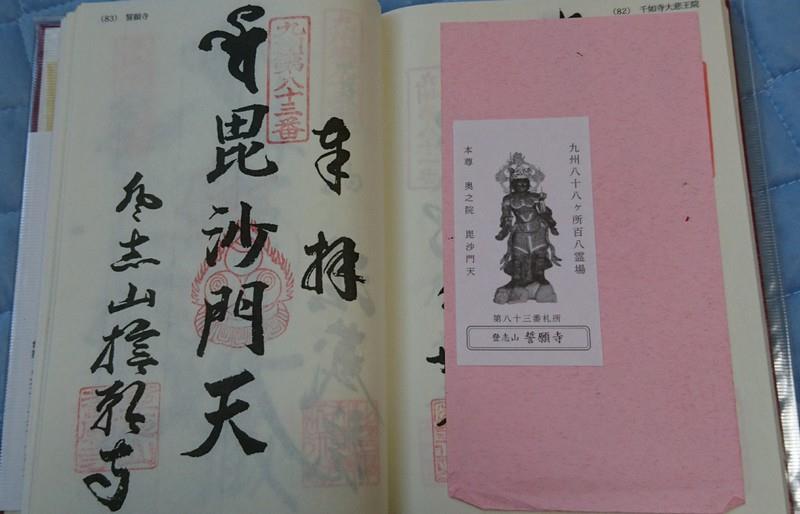 (83) 誓願寺
九州第八十三番
奉拝
毘沙門天
登志山誓願寺
(82) 千如寺大悲王院
九州八十八ヶ所百八霊場
本尊 奥之院 毘沙門天
第八十三番札所
登志山 誓願寺